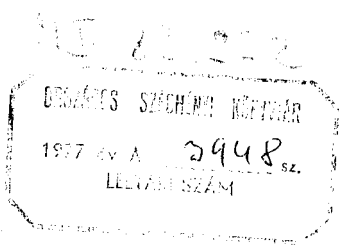 ORSZÁGOS SZÉCHÉNYI KÖNYVTÁR
1977 év A 3948 sz.
LELTÁRI SZÁM